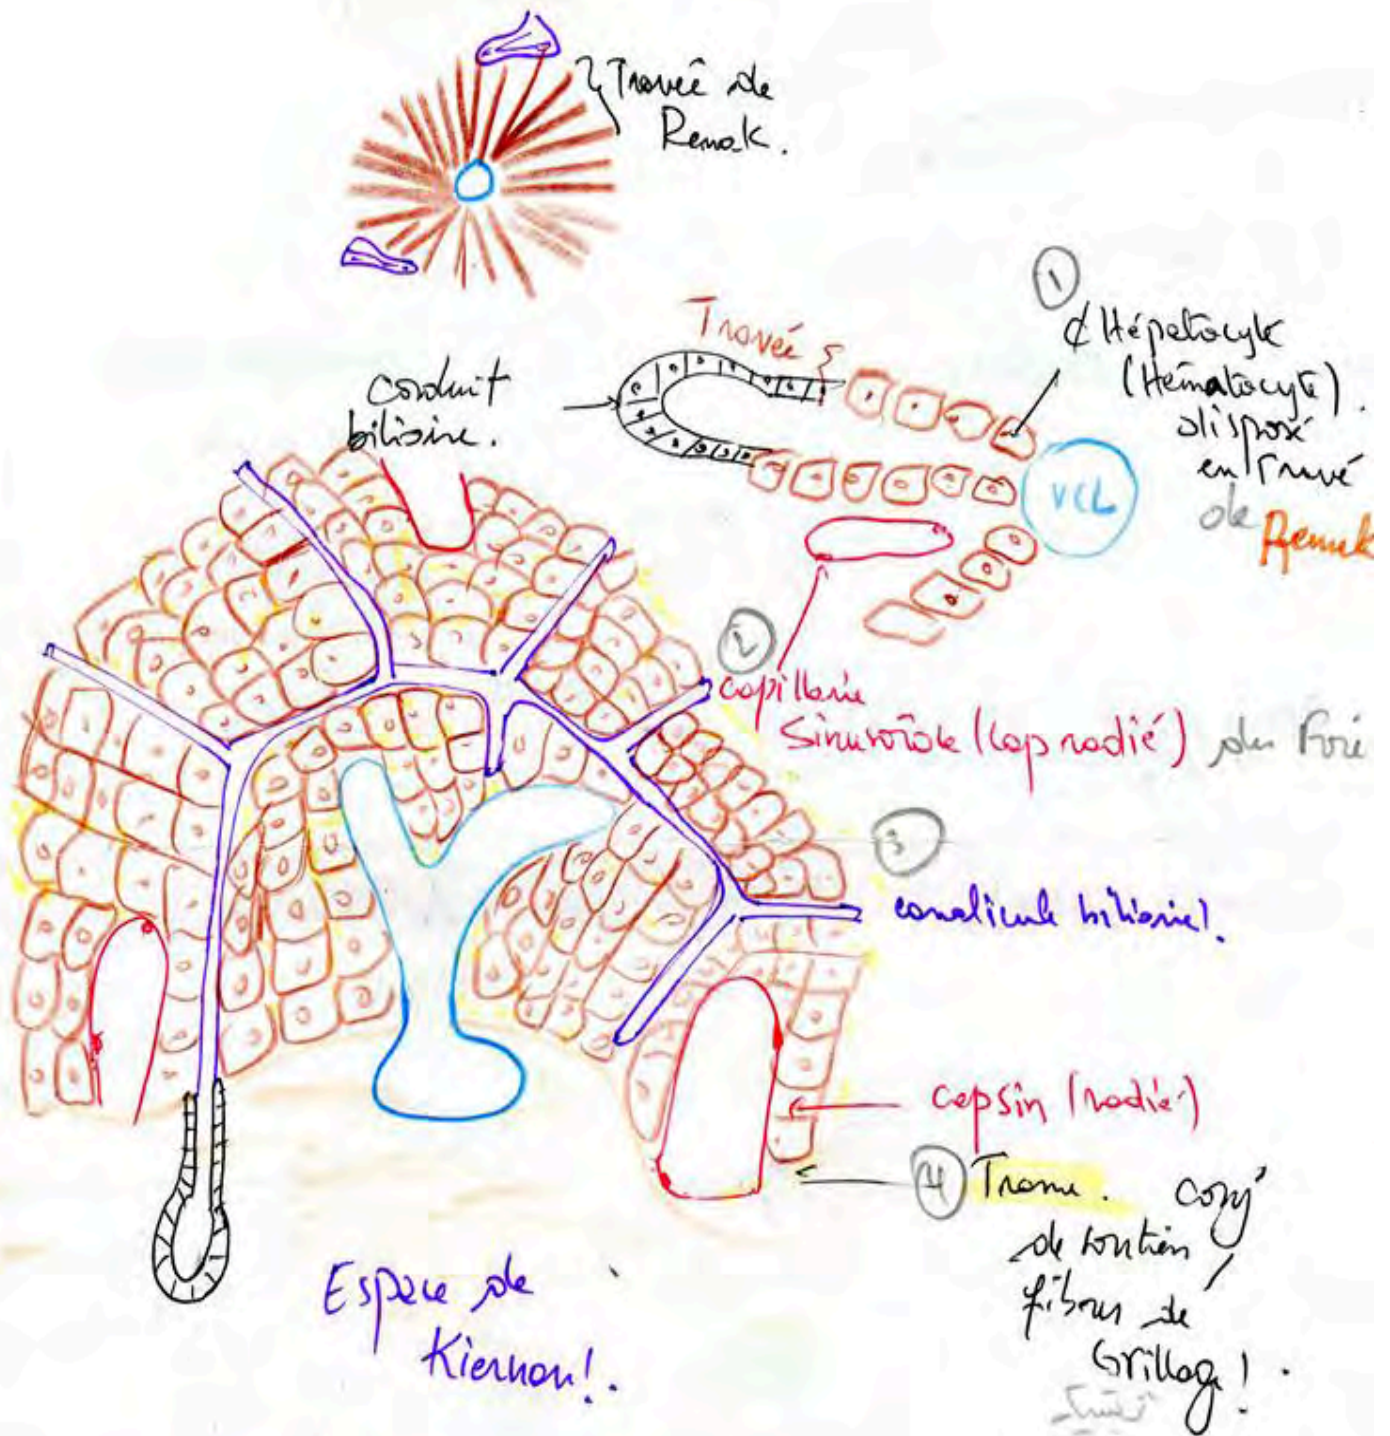 Travée de
Remak.
Travée
conduit
biliaire.
1
¢ Hépatocyte
(Hématocyte).
disposé
en Travé
de Remak
VCL
2
capillaire
Sinusoïde (Cap radié) du Foie
3
canalicule biliaire!.
capsin (radié)
4 Trame. conj
de soutien
fibres de
Grillage!.
Espace de
Kiernan!.